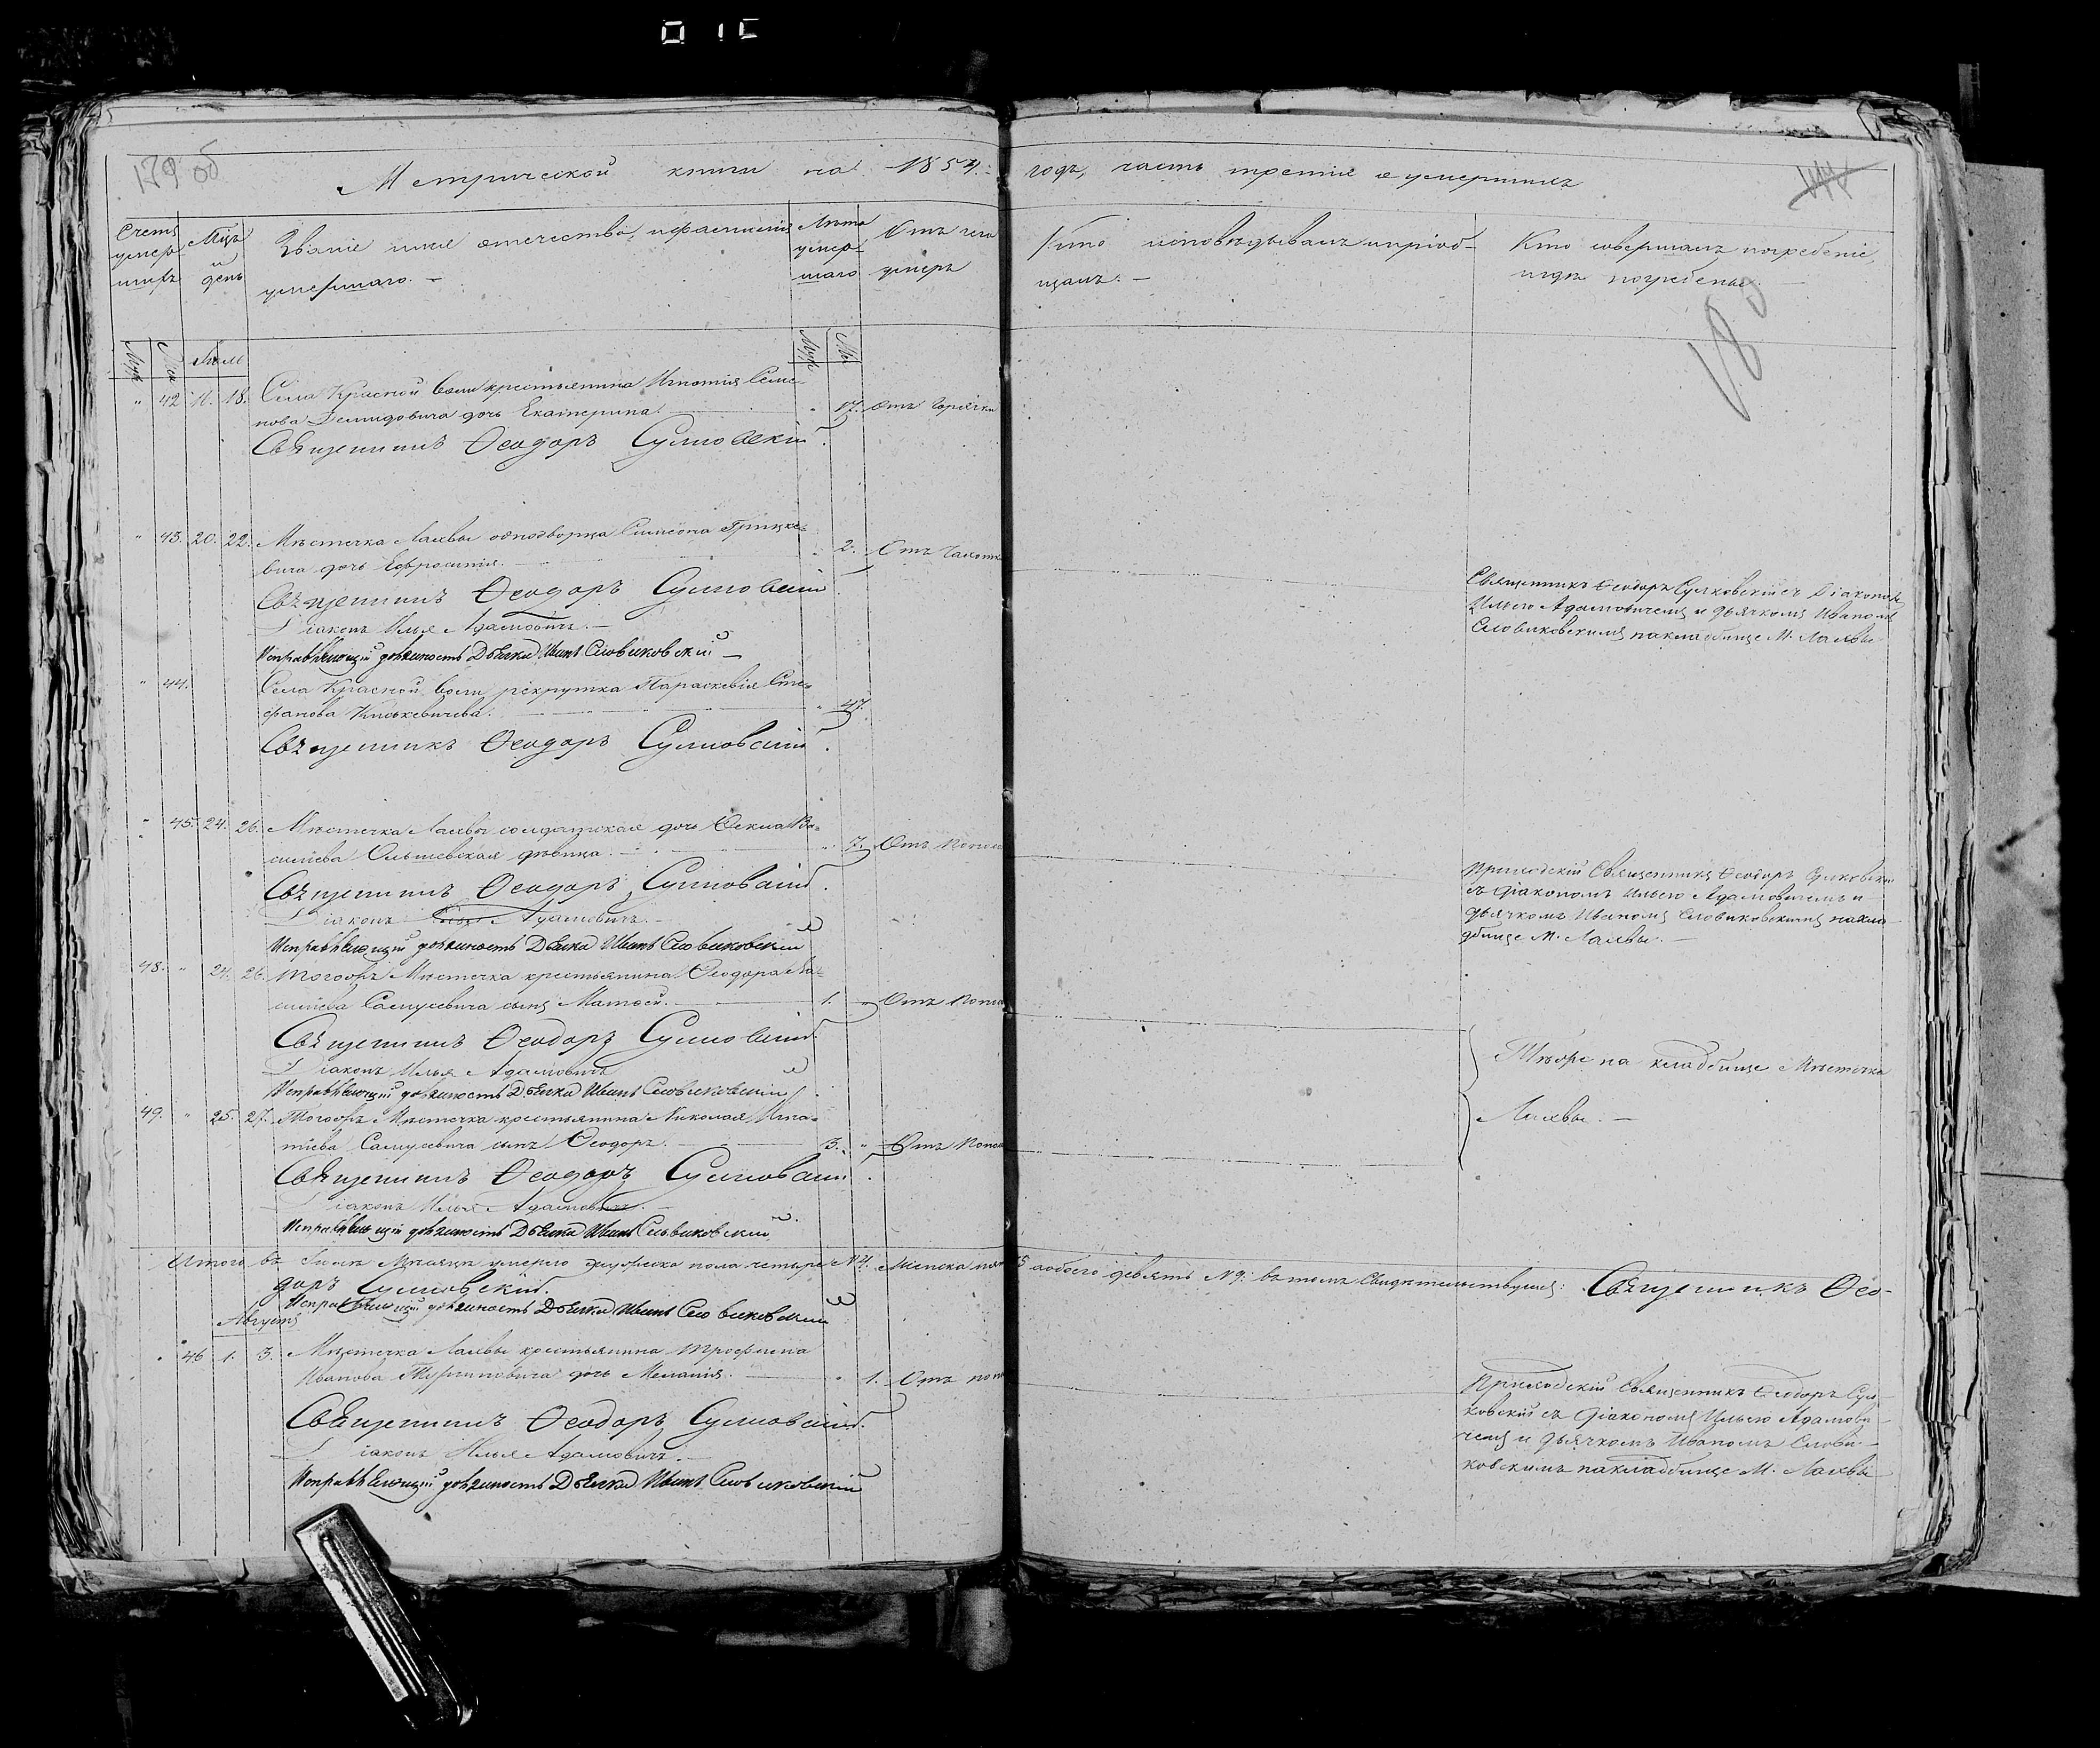 179 об
Метрической книги на 1854: годъ, часть третія о умершихъ
Счетъ умер-шихъ
Мѣць и день
Званіе имя отечество, и фамилія умершаго. —
Лѣта умер-шаго
Отъ чего умеръ
Кто исповѣдывалъ и пріоб-
щалъ. —
Кто совершалъ погребеніе,
и гдѣ погребены. —
180
Муж
Жен
Іюль
Муж
Же
" 42 18. Села Красной воли крестьянина Игнатія Семе-
нова Демидовича дочь Екатерина. " 17. Отъ Горячки
Священникъ Ѳеодоръ Сулковскій.
" 43. 20. 22. Мѣстечка Лахвы однодворца Симеона Грицке-
вича дочь Ефросинія. " 2. Отъ
Священникъ Ѳеодоръ Сулковскій
Діаконъ Илья Адамовичъ. —
Исправляющій должность Дьячка Иванъ Словиковскій —
Священникъ Ѳеодоръ Сулковскій съ Діакономъ
Ильею Адамовичемъ и дьячкомъ Иваномъ
Словиковскимъ на кладбище М. Лахвы
" 44. Села Красной воли рекрутка Параскевія Сте-
фанова Киськевичева. " 47.
Священникъ Ѳеодоръ Сулковскій.
" 45. 24. 26. Мѣстечка Лахвы солдатская дочь Ѳекла Ва-
силіева Ольшевская дѣвица. " 7. Отъ поноса
Священникъ Ѳеодоръ Сулковскій.
Діаконъ Илья Адамовичъ. —
Исправляющій должность Дьячка Иванъ Словиковскій
Приходскій Священникъ Ѳеодоръ Сулковскій
съ діакономъ Ильею Адамовичемъ и
дьячкомъ Иваномъ Словиковскимъ на кла-
дбище М. Лахвы. —
48. " 24. 26. Тогожъ Мѣстечка крестьянина Ѳеодора Ва-
силіева Самусевича сынъ Матѳей. 1. " Отъ поноса
Священникъ Ѳеодоръ Сулковскій.
Діаконъ Илья Адамовичъ
Исправляющій должность Дьячка Иванъ Словиковскій
Тѣже на кладбище Мѣстечка
49. " 25. 27. Тогожъ Мѣстечка крестьянина Николая Игна-
тіева Самусевича сынъ Ѳеодоръ. 3. " Отъ поноса
Лахвы. —
Священникъ Ѳеодоръ Сулковскій.
Діаконъ Илья Адамовичъ. —
Исправляющій должность Дьячка Иванъ Словиковскій
Итого въ Іюлѣ Мѣсяцѣ умерло мужеска пола четыре №4. Женска обоего девять №9. въ томъ свидѣтельствуемъ: Священникъ Ѳео-
доръ Сулковскій.
Исправляющій должность Дьячка Иванъ Словиковскій
Августъ
" 46 1. 3. Мѣстечка Лахвы крестьянина Трофима
Иванова Турцновича дочь Меланія. " 1. Отъ поноса
Священникъ Ѳеодоръ Сулковскій.
Діаконъ Илья Адамовичъ. —
Исправляющій должность Дьячка Иванъ Словиковскій
Приходскій Священникъ Ѳеодоръ Сул-
ковскій съ діакономъ Ильею Адамови-
чемъ и дьячкомъ Иваномъ Слови-
ковскимъ на кладбище М. Лахвы